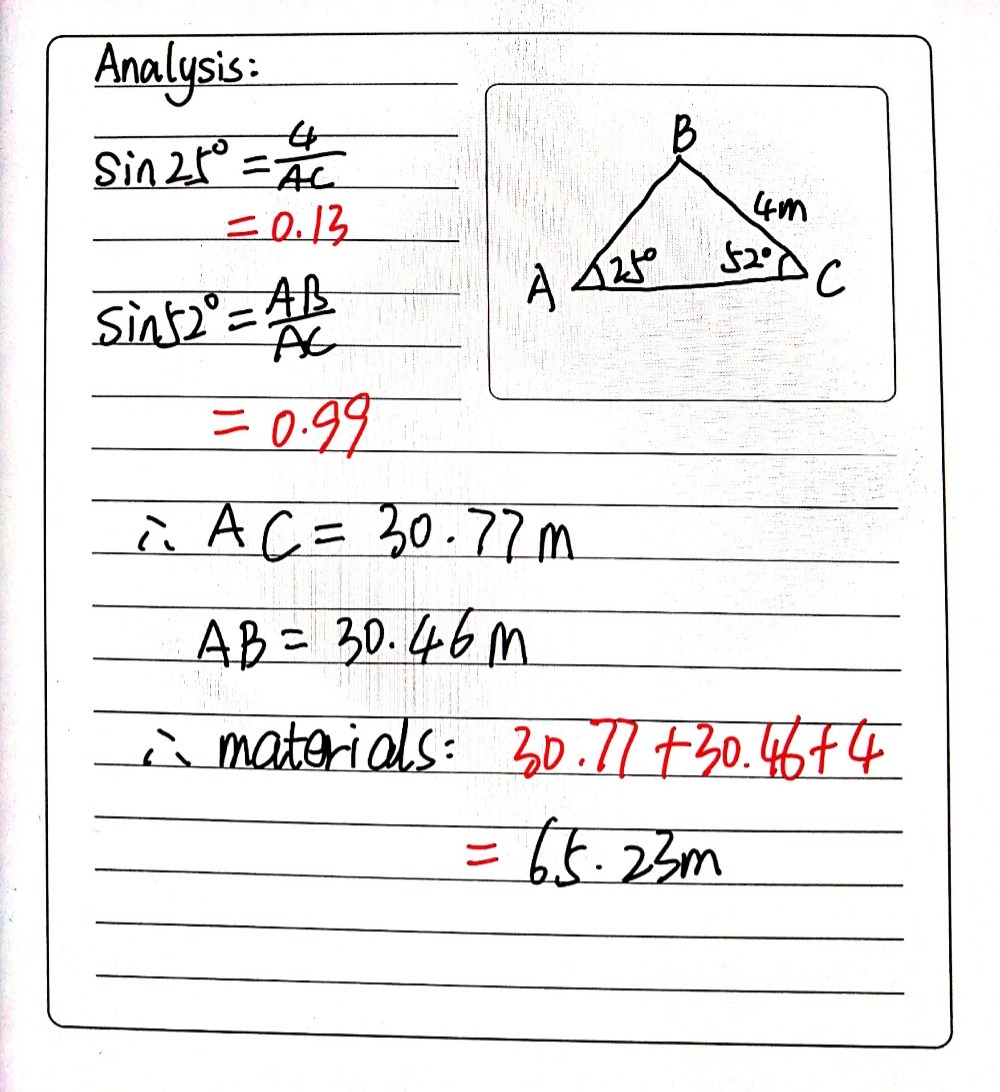 Analysis:
sin 25° = 4/AC
= 0.13
sin 52° = AB/AC
= 0.99
∴ AC = 30.77m
AB = 30.46m
∴ materials: 30.77 + 30.46 + 4
= 65.23m
B
4m
A 25° 52° C